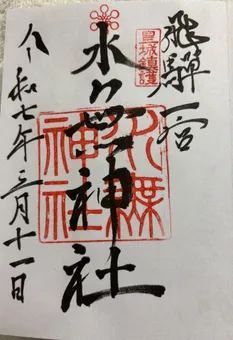 飛驒一宮
皇城鎮護
水無神社
水無神社
令和七年三月十一日